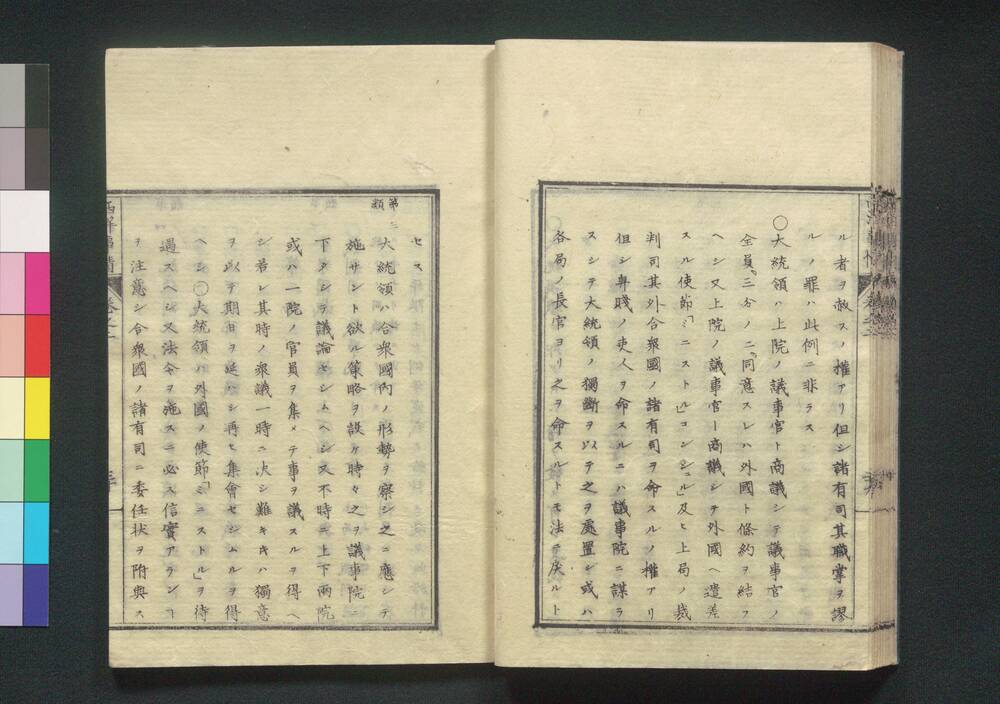 ル者ヲ赦スノ權アリ但シ諸有司其職掌ヲ謬
ルノ罪ハ此例ニ非ラス
〇大統領ハ上院ノ議事官ト商議シテ議事官ノ
全員三分ノ二同意スレハ外國ト條約ヲ結フ
ヘシ又上院ノ議事官ト商議シテ外國ヘ遣差
スル使節「ミニストル」「コンシュル」及ヒ上局ノ裁
判司其外合衆國ノ諸有司ヲ命スルノ權アリ
但シ卑賤ノ吏人ヲ命スルニハ議事院ニ謀ラ
スシテ大統領ノ獨斷ヲ以テ之ヲ處置シ或ハ
各局ノ長官ヨリ之ヲ命スルトモ法ニ戻ルト
セス
第三類
大統領ハ合衆國內ノ形勢ヲ察シ之ニ應シテ
施サント欲ル策略ヲ設ケ時々之ヲ議事院ニ
下タシテ議論セシムヘシ又不時ニ上下兩院
或ハ一院ノ官員ヲ集メテ事ヲ議スルヲ得ヘ
シ若レ其時ノ衆議一時ニ決シ難キキハ獨意
ヲ以テ期日ヲ延ハシ再ヒ集會セシムルヲ得
ヘシ〇大統領ハ外國ノ使節「ミニストル」ヲ待
遇スヘシ又法令ヲ施スニ必ス信實アランヿ
ヲ注意シ合衆國ノ諸有司ニ委任狀ヲ附與ス